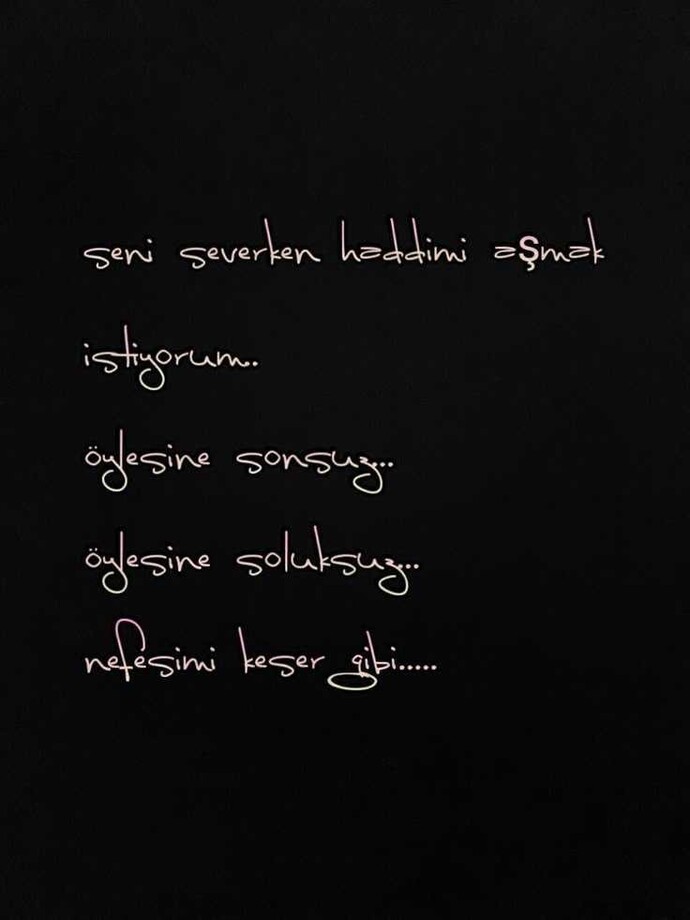 seni severken haddimi aŞmak
istiyorum..
öylesine sonsuz...
öylesine soluksuz...
nefesimi keser gibi.....